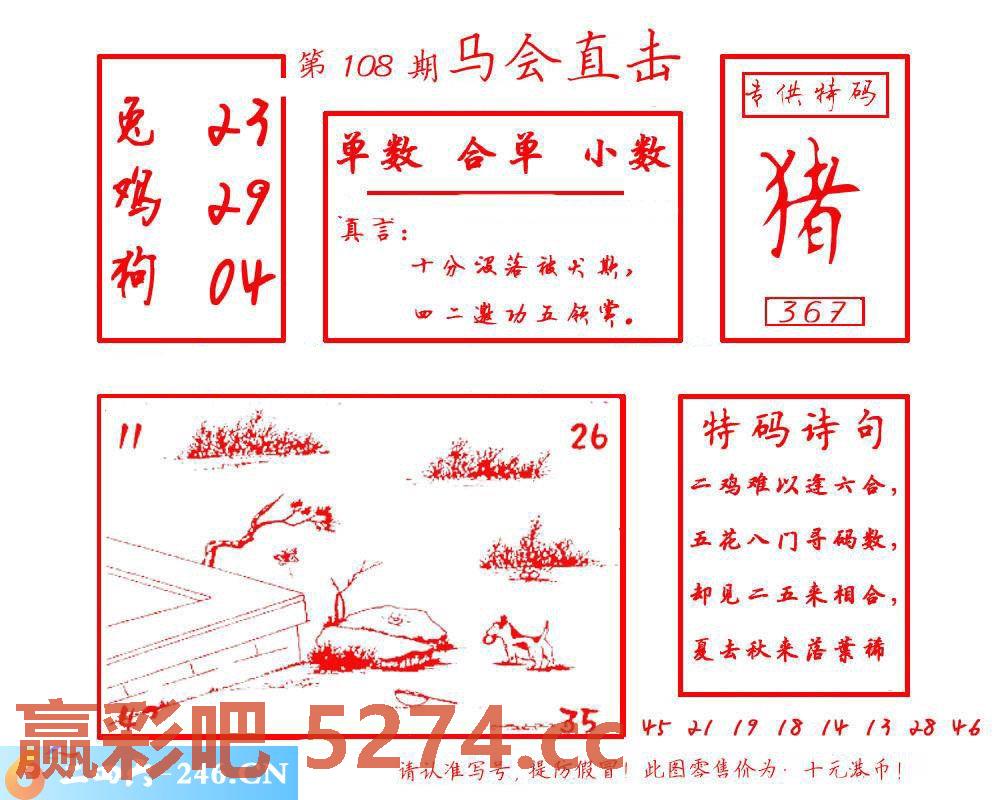 第 108 期 马会直击
兔 23
鸡 29
狗 04
单数 合单 小数
真言：
十分没落被犬欺，
四二邀功五领赏。
专供特码
猪
367
11 26
35
特码诗句
二鸡难以逢六合，
五花八门寻码数，
却见二五来相合，
夏去秋来落葉稀
45 21 19 18 14 13 28 46
赢彩吧 5274.cc
-246.CN
请认准写号，提防假冒！此图零售价为：十元港币！